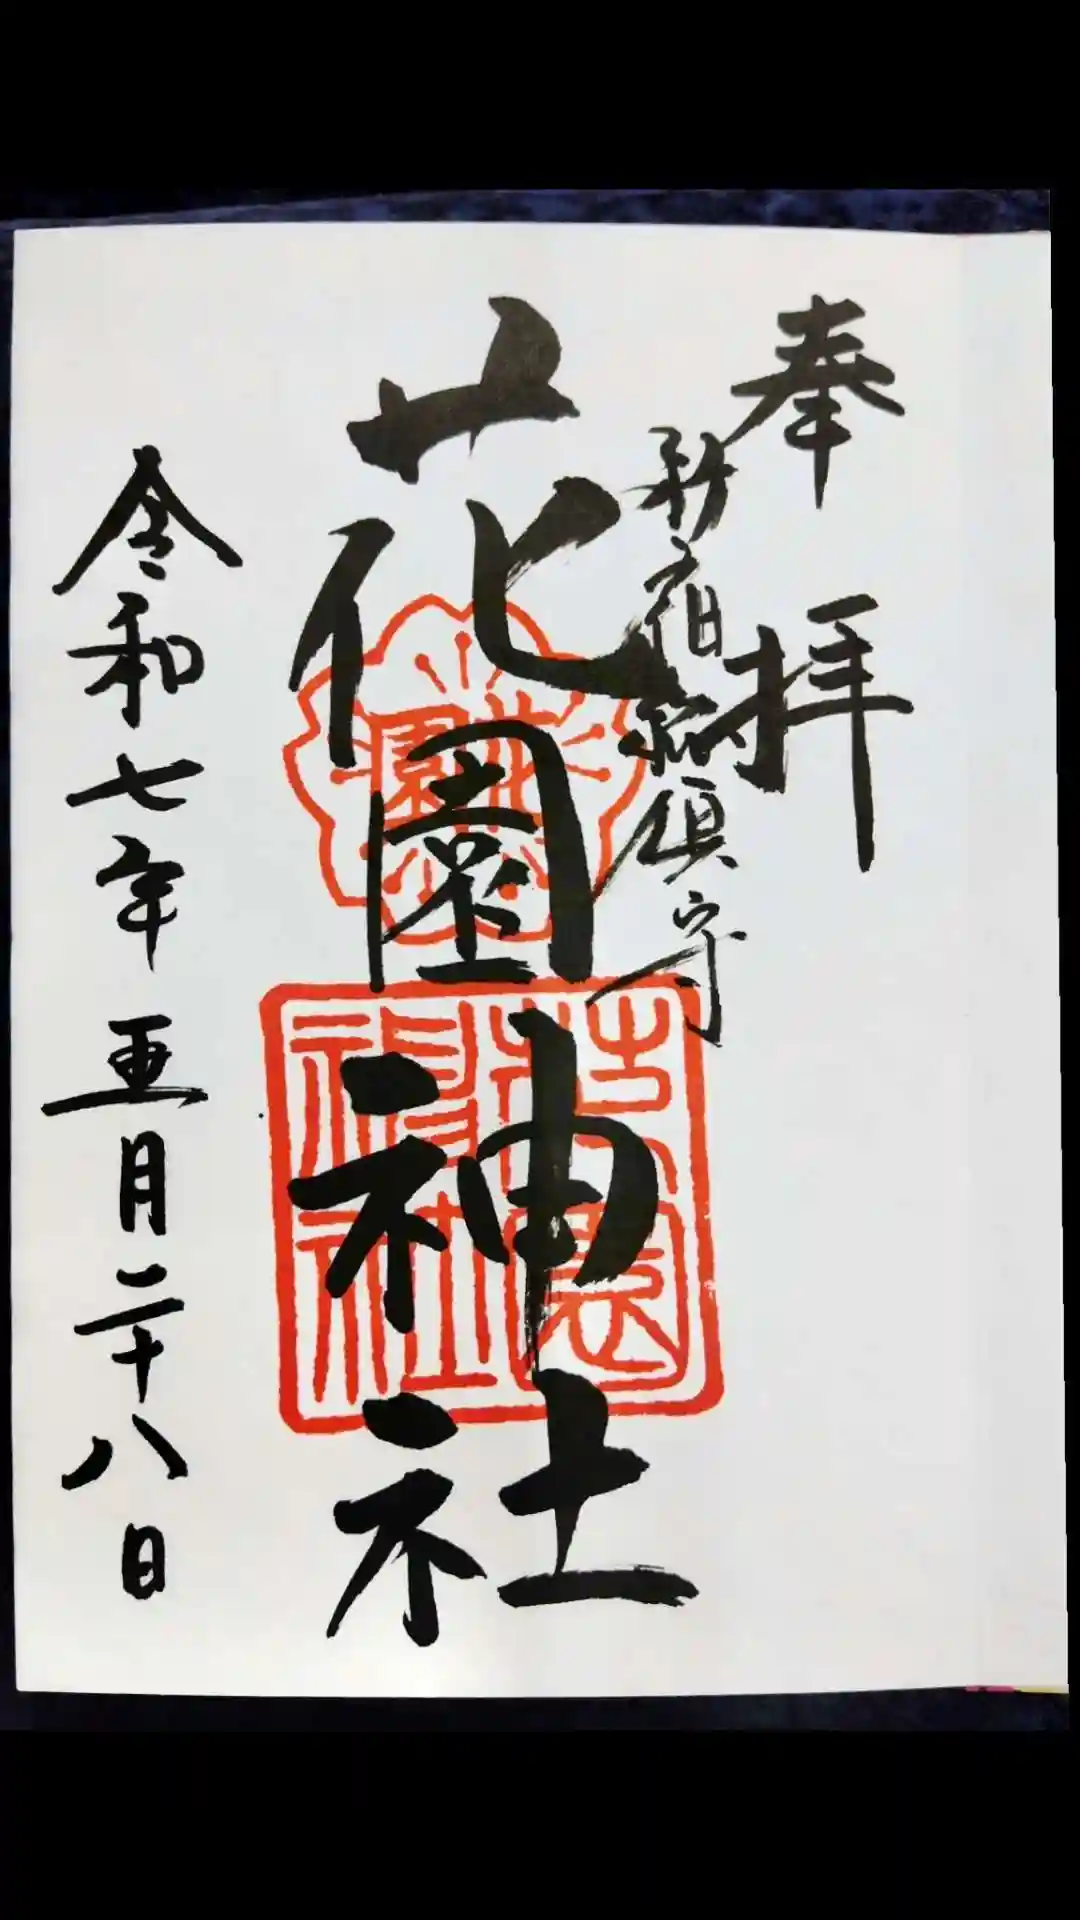 奉拝
新宿総鎮守
花園神社
花園
花園神社
令和七年五月二十八日